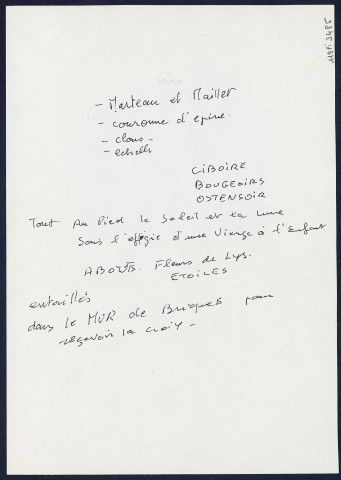 - Marteau et Maillet
- couronne d'épine.
- clous -
- echelle
CIBOIRE
BOUGEOIRS
OSTENSOIR
Tout Au Pied le Soleil et la Lune
Sous l'effigie d'une Vierge à l'Enfant
ABOUTS. Fleurs de Lys.
ETOILES
entaillés
dans le MUR de Briques pour
reçevoir la croix -